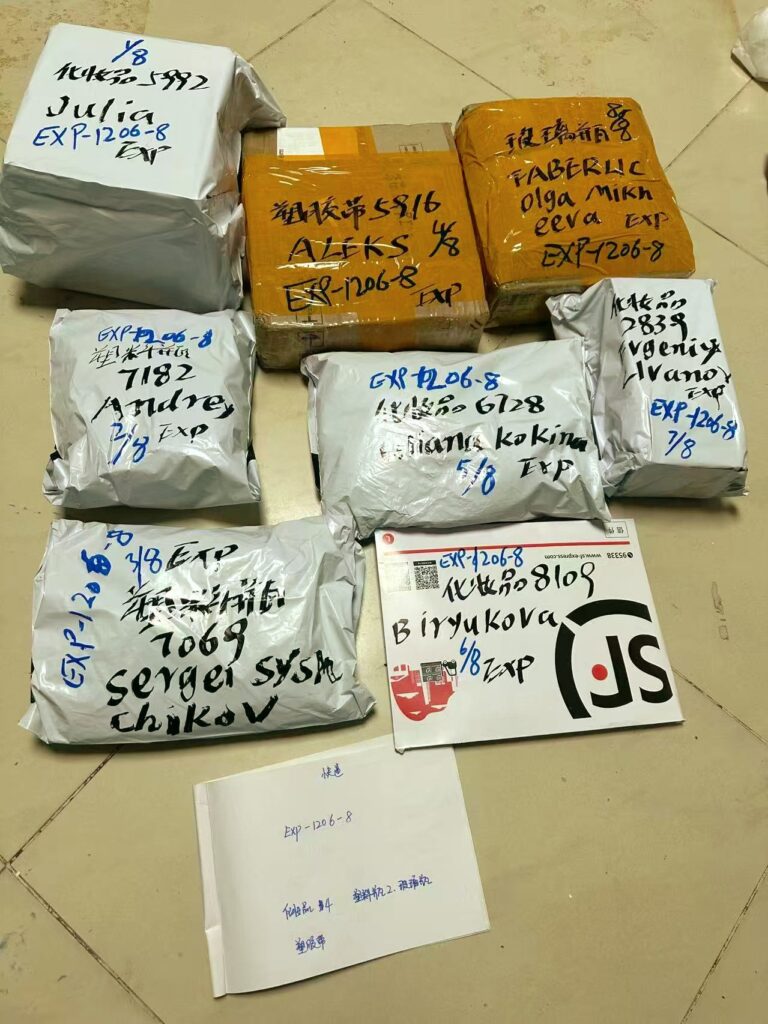 1/8
化妆品5992
Julia
EXP-1206-8
EXP
塑胶带5916
ALEKS 4/8
EXP-1206-8
EXP
玻璃瓶 8/8
FABERLIC
Olga Mikh
eeva EXP
EXP-1206-8
EXP-1206-8
塑料瓶
7182
Andrey
2/8 EXP
EXP-1206-8
化妆品6728
kokina
5/8 EXP
化妆品
2839
Evgeniya
EXP
EXP-1206-8
7/8
EXP-1206-8
3/8 EXP
塑料瓶
7069
Sergei Sysm
chikov
www.sf-express.com 95338
EXP-1206-8
化妆品8109
Biryukova
6/8 EXP
SF
快递
EXP-1206-8
化妆品 4 塑料瓶2. 玻璃瓶
塑胶带